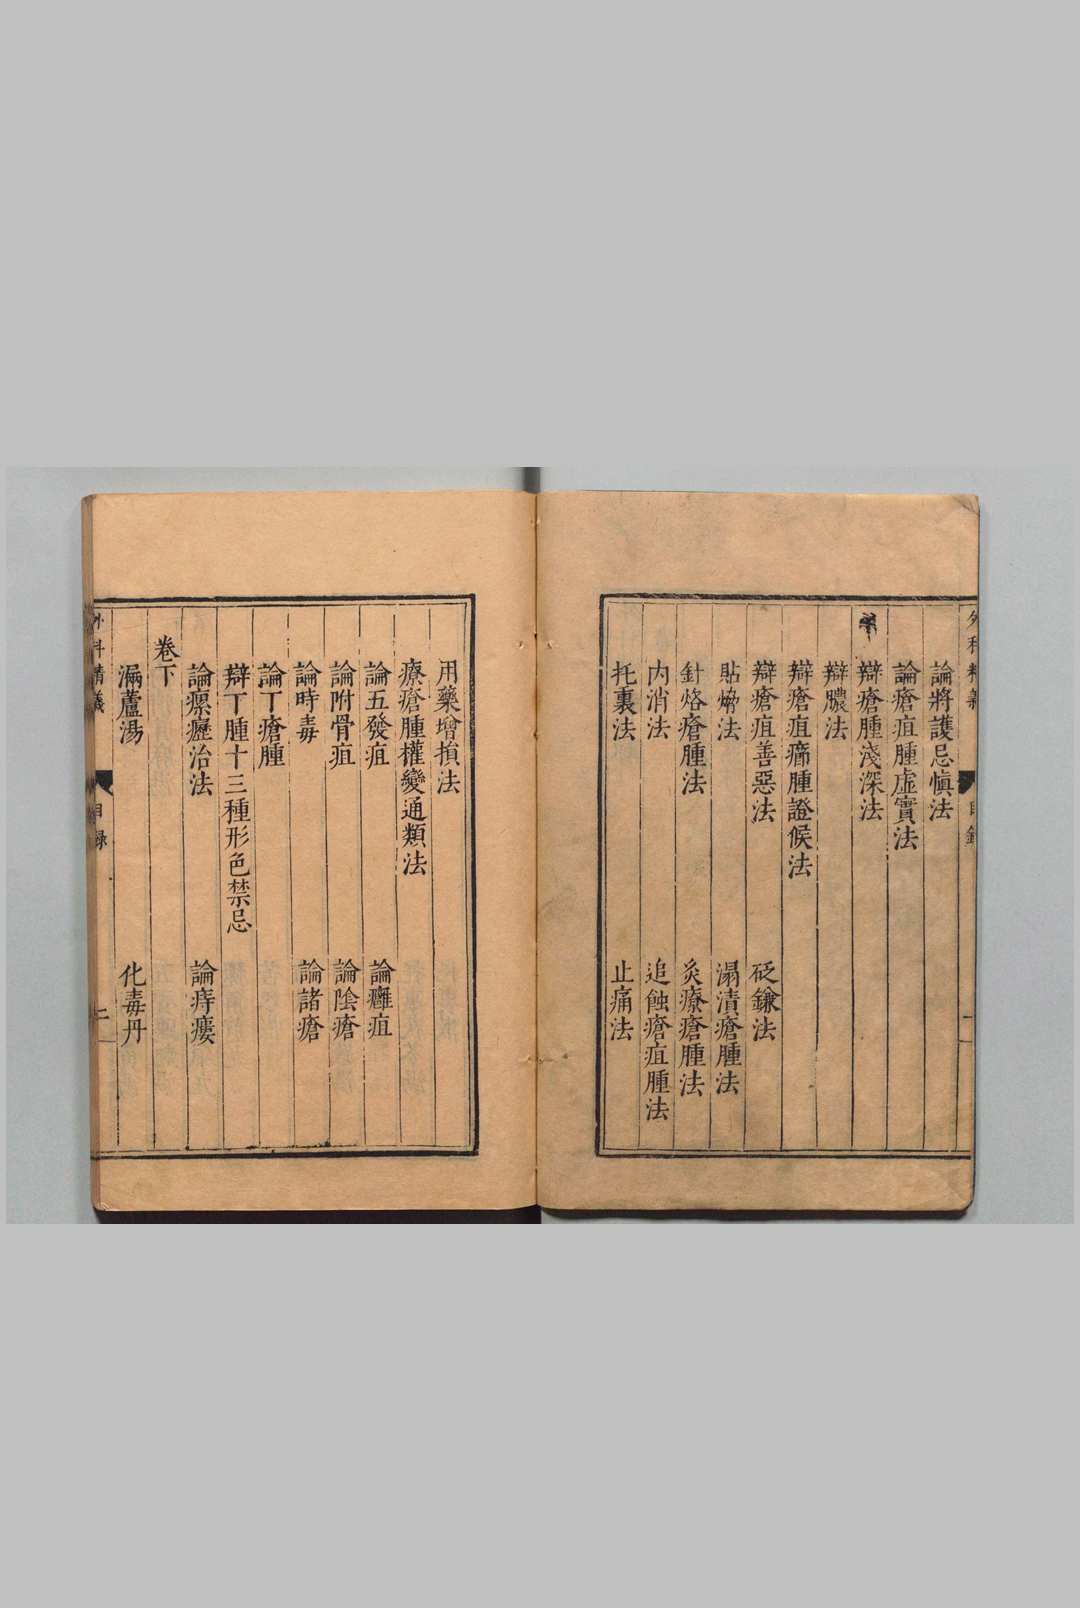 論將護忌愼法
論瘡疽腫虛實法
辯瘡腫淺深法
辯膿法
辯瘡疽痛腫證候法
辯瘡疽善惡法
砭鎌法
貼熁法
溻漬瘡腫法
針烙瘡腫法
灸療瘡腫法
内消法
追蝕瘡疽腫法
托裏法
止痛法
用藥增損法
療瘡腫權變通類法
論五發疽
論癰疽
論附骨疽
論陰瘡
論時毒
論諸瘡
論丁瘡腫
辯丁腫十三種形色禁忌
論瘰癧治法
論痔瘻
卷下
漏蘆湯
化毒丹
外科精義
目録
二